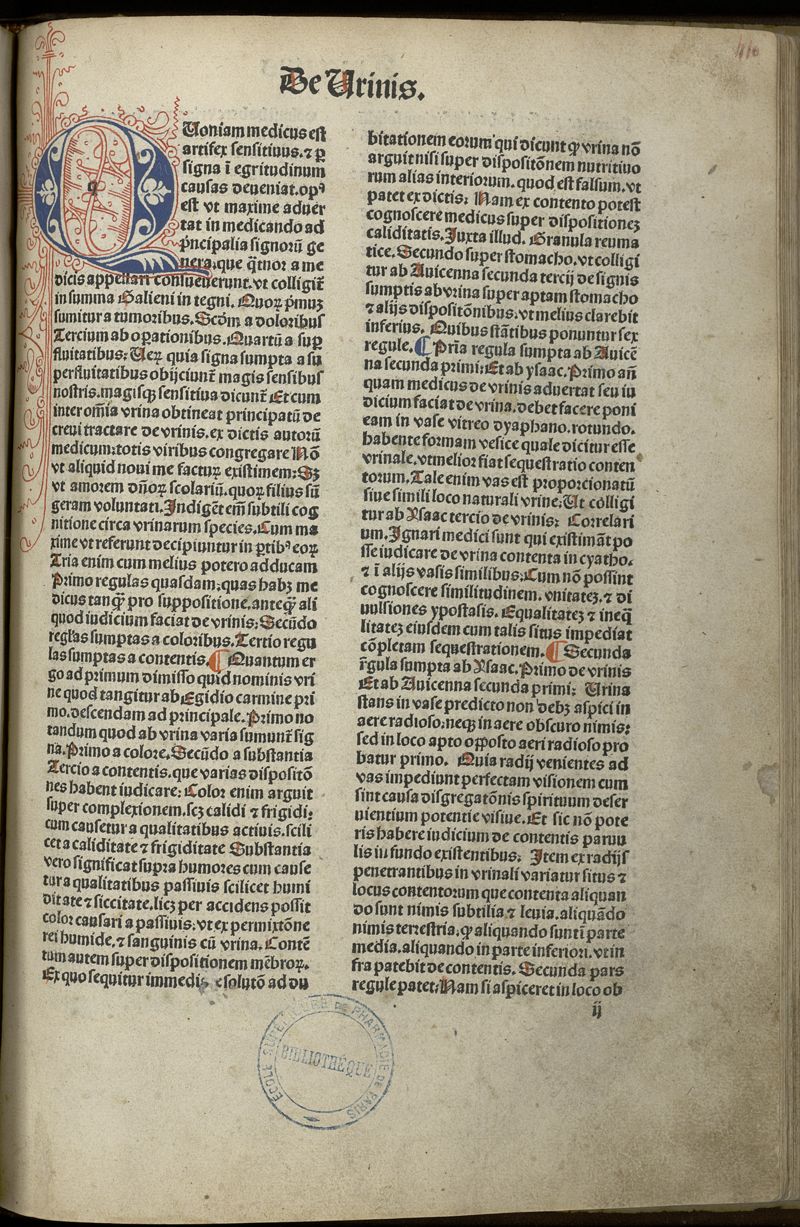 De Urinis.
QUoniam medicus est
artifex sensitiuus.⁊ ꝑ
signa ī egritudinum
causas deueniat.opꝰ
est vt maxime aduer
tat in medicando ad
p̄ncipalia signorū ge
nera.que q̄tuor a me
dicis appellari consueuerunt.vt colligit᷑
in summa Galieni in tegni. Quoꝝ p̄muꝫ
sumitur a tumoribus.Scdm̄ a doloribus
Tercium ab oꝑationibus.Quartū a suꝑ
fluitatibus: Ueꝝ quia signa sumpta a su
perfluitatibus obijciunt᷑ magis sensibus
nostris.magisqꝫ sensitiua dicunt᷑ Et cum
inter om̄ia vrina obtineat principatū de
creui tractare de vrinis.ex dictis autorū
medicum:totis viribus congregare Nō
vt aliquid noui me facturꝫ existimem:Sꝫ
vt amorem dn̄oꝝ scolariū.quoꝝ filius sū
geram voluntati.Indiget em̄ subtili cog
nitione circa vrinarum species.Cum ma
xime vt referunt decipiuntur in ꝑtibꝰ eoꝝ
Tria enim cum melius potero adducam
Primo regulas quasdam:quas habꝫ me
dicus tanq̄ꝫ pro suppositione.anteq̄ꝫ ali
quod iudicium faciat de vrinis:Secūdo
reglas sumptas a coloribus.Tertio regu
las sumptas a contentis.¶ Quantum er
go ad primum dimisso quid nominis vri
ne quod tangitur ab Egidio carmine pri
mo.descendam ad principale.Primo no
tandum quod ab vrina varia sumunt᷑ sig
na.Primo a colore.Secūdo a substantia
Tercio a contentis.que varias dispositō
nes habent iudicare: Color enim arguit
super complexionem.scꝫ calidi ⁊ frigidi:
cum causetur a qualitatibus actiuis.scili
cet a caliditate ⁊ frigiditate Substantia
vero significat supra humores cum cause
tur a qualitatibus passiuis scilicet humi
ditate ⁊ siccitate.licꝫ per accidens possit
color causari a passiuis:vt ex permixtōne
rei humide.⁊ sanguinis cū vrina.Contē
tum autem super dispositionem mēbroꝝ.
Ex quo sequitur immedi e solutō ad du
bitationem eorum qui dicunt qꝫ vrina nō
arguit nisi super dispositōnem nutritiuo
rum alias interiorum.quod est falsum.vt
patet ex dictis: Nam ex contento potest
cognoscere medicus super dispositionez
caliditatis.Iuxta illud. Granula reuma
tice.Secundo super stomacho.vt colligi
tur ab Auicenna secunda tercij de signis
sumptis ab vrina super aptam stomacho
⁊ alijs dispositōnibus:vt melius clarebit
inferius. Quibus stātibus ponuntur sex
regule.¶ Pria regula sumpta ab Auicē
na secunda primi:Et ab ysaac.Primo an̄
quam medicus de vrinis aduertat seu iu
dicium faciat de vrina.debet facere poni
eam in vase vitreo dyaphano.rotundo.
habente formam vesice quale dicitur esse
vrinale.vt melior fiat sequestratio conten
torum.Tale enim vas est proporcionatū
siue simili loco naturali vrine:Ut colligi
tur ab Ysaac tercio de vrinis: Correlari
um.Ignari medici sunt qui existimāt po
sse iudicare de vrina contenta in cyatho.
⁊ ī alijs vasis similibus:Cum nō possint
cognoscere similitudinem.vnitatez.⁊ di
uulsiones ypostasis. Equalitatez ⁊ ineq̄
litatez eiusdem cum talis situs impediat
cōpletam sequestrationem.¶ Secunda
r̄gula sumpta ab Ysaac.Primo de vrinis
Et ab Auicenna secunda primi: Urina
stans in vase predicto non debꝫ aspici in
aere radioso:neqꝫ in aere obscuro nimis:
sed in loco apto opposito aeri radioso pro
batur primo. Quia radij venientes ad
vas impediunt perfectam visionem cum
sint causa disgregatōnis spirituum deser
uientium potentie visiue.Et sic nō pote
ris habere iudicium de contentis paruu
lis in fundo existentibus: Item ex radijs
penetrantibus in vrinali variatur situs ⁊
locus contentorum que contenta aliquan
do sunt nimis subtilia ⁊ leuia.aliquādo
nimis terrestria.qꝫ aliquando sunt ī parte
media.aliquando in parte inferiori.vt in
fra patebit de contentis. Secunda pars
regule patet:Nam si aspiceret in loco ob
ij
ECOLE SUPERIEURE DE PHARMACIE DE PARIS
BIBLIOTHÈQUE